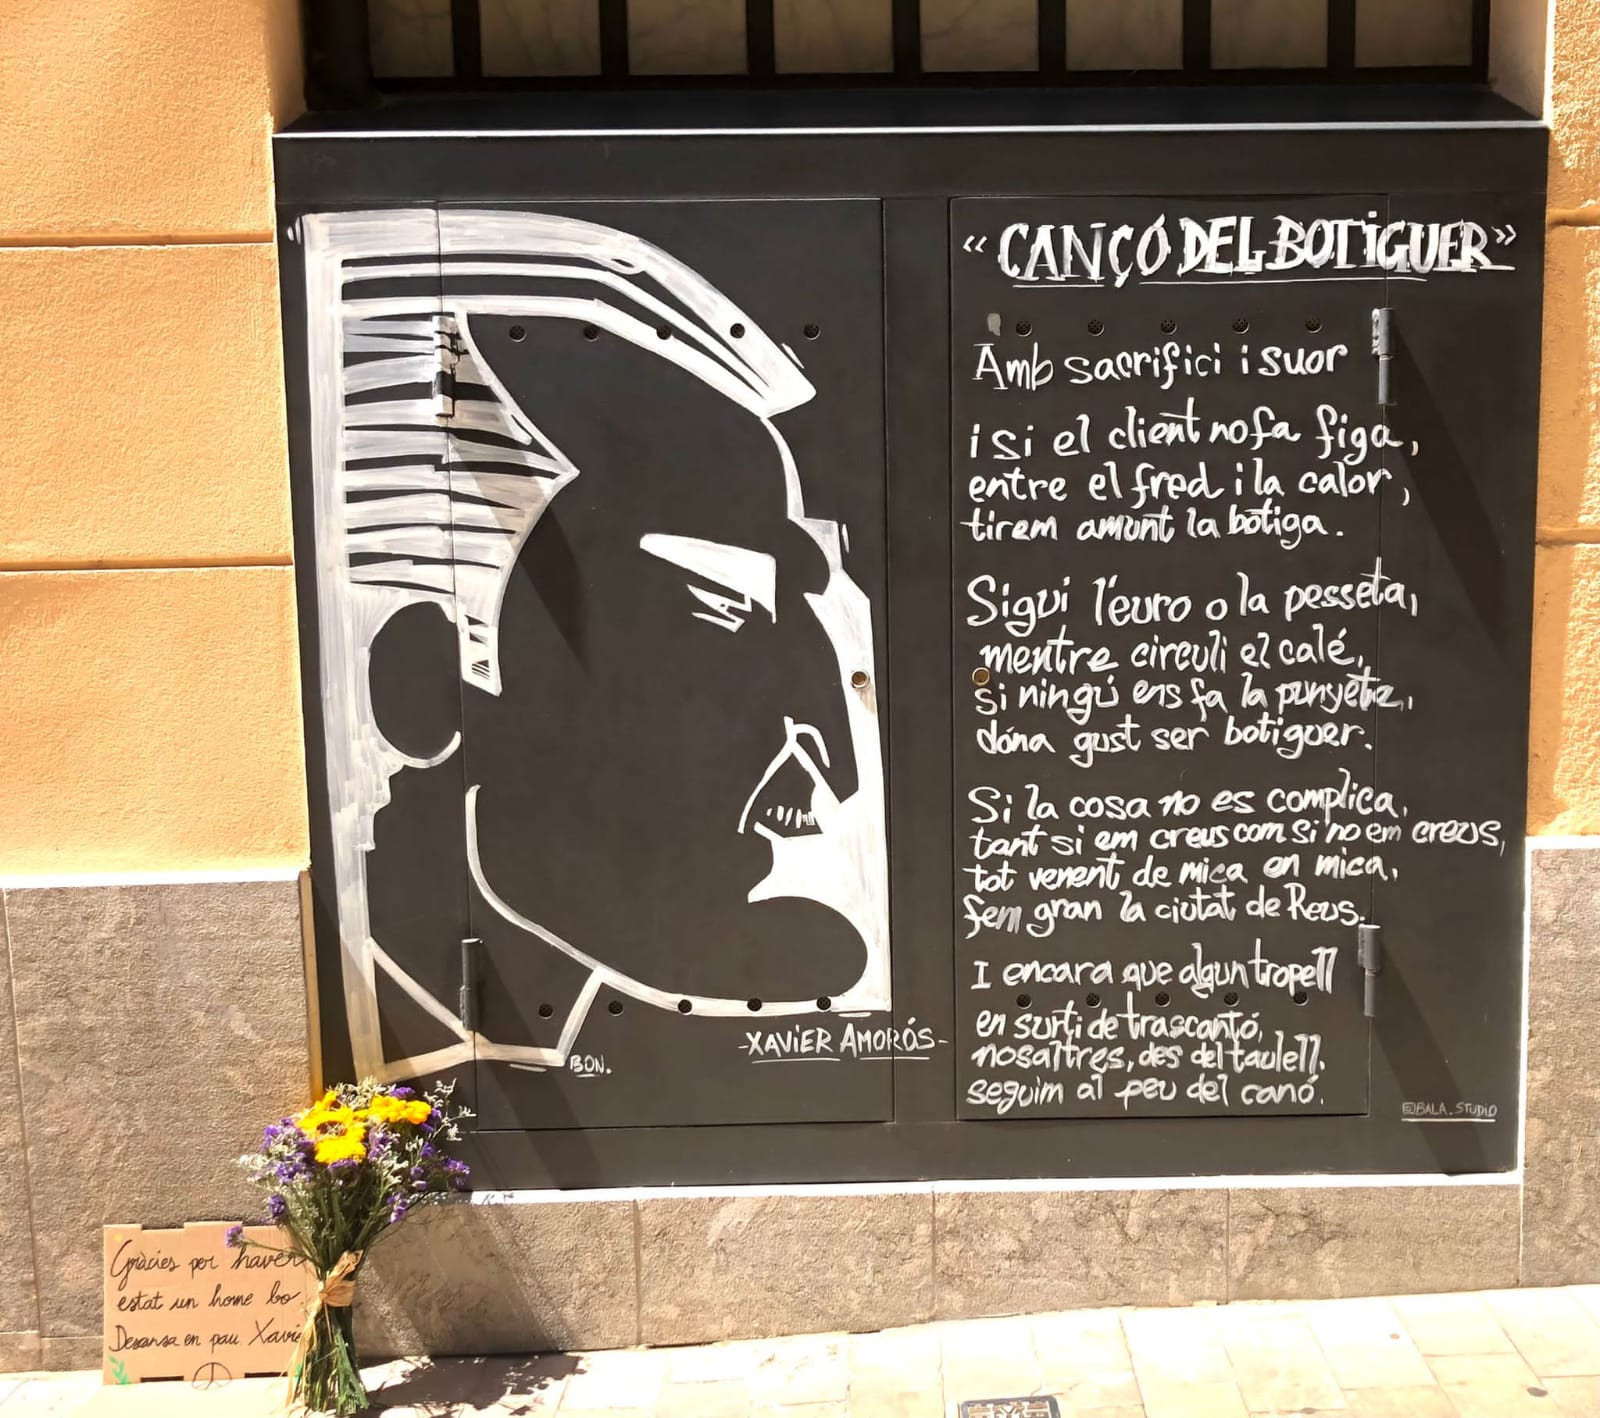 « CANÇÓ DEL BOTIGUER »
Amb sacrifici i suor
i si el client no fa figa,
entre el fred i la calor,
tirem amunt la botiga.
Sigui l'euro o la pesseta,
mentre circuli el calé,
si ningú ens fa la punyeta,
dóna gust ser botiguer.
Si la cosa no es complica,
tant si em creus com si no em creus,
tot venent de mica en mica,
fem gran la ciutat de Reus.
I encara que algun tropell
en surti de trascantó,
nosaltres, des del taulell,
seguim al peu del canó.
-XAVIER AMORÓS-
BON.
@BALA_STUDIO
Gràcies per haver
estat un home bo
Descansa en pau Xavi